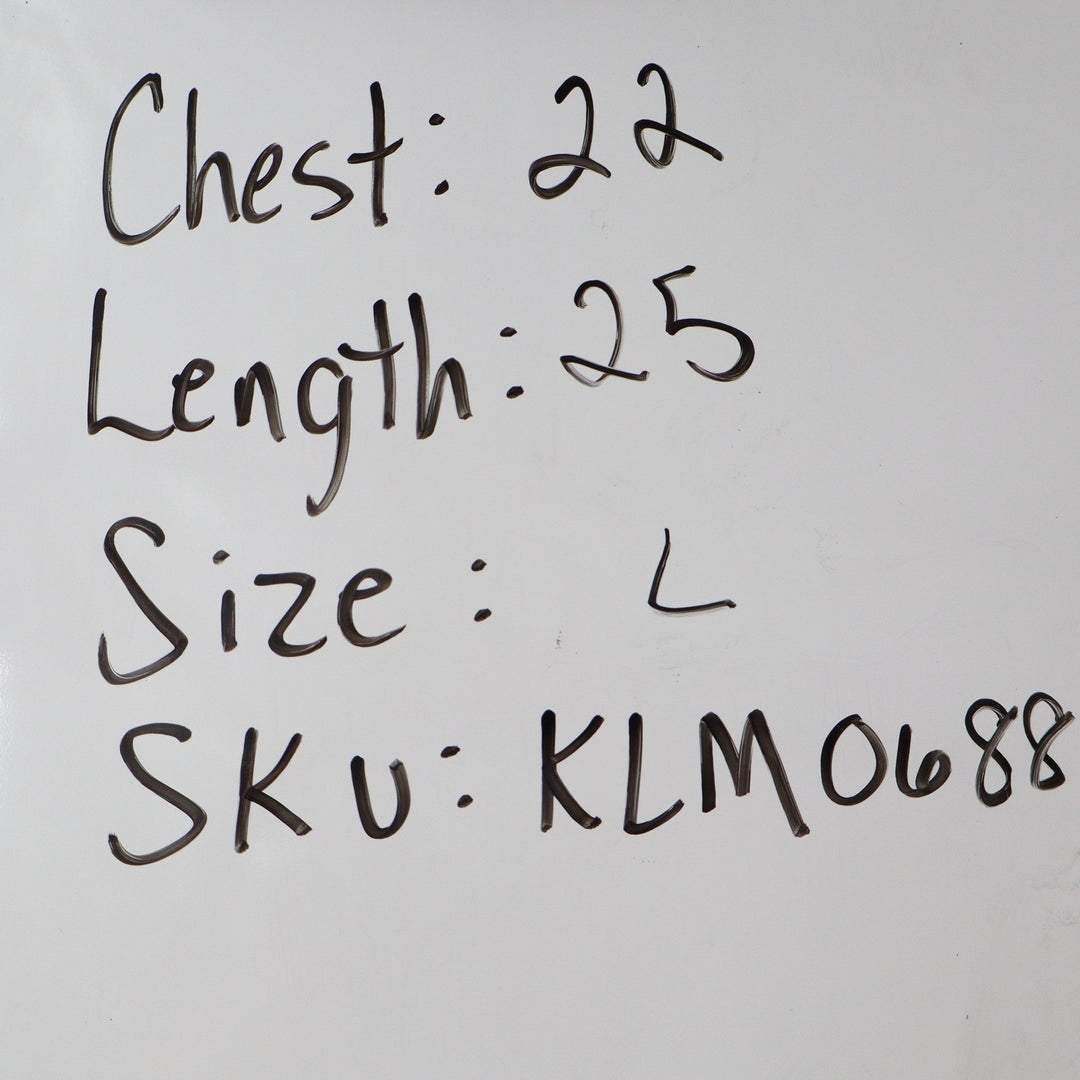 Chest: 22
Length: 25
Size: L
SKU: KLM0688